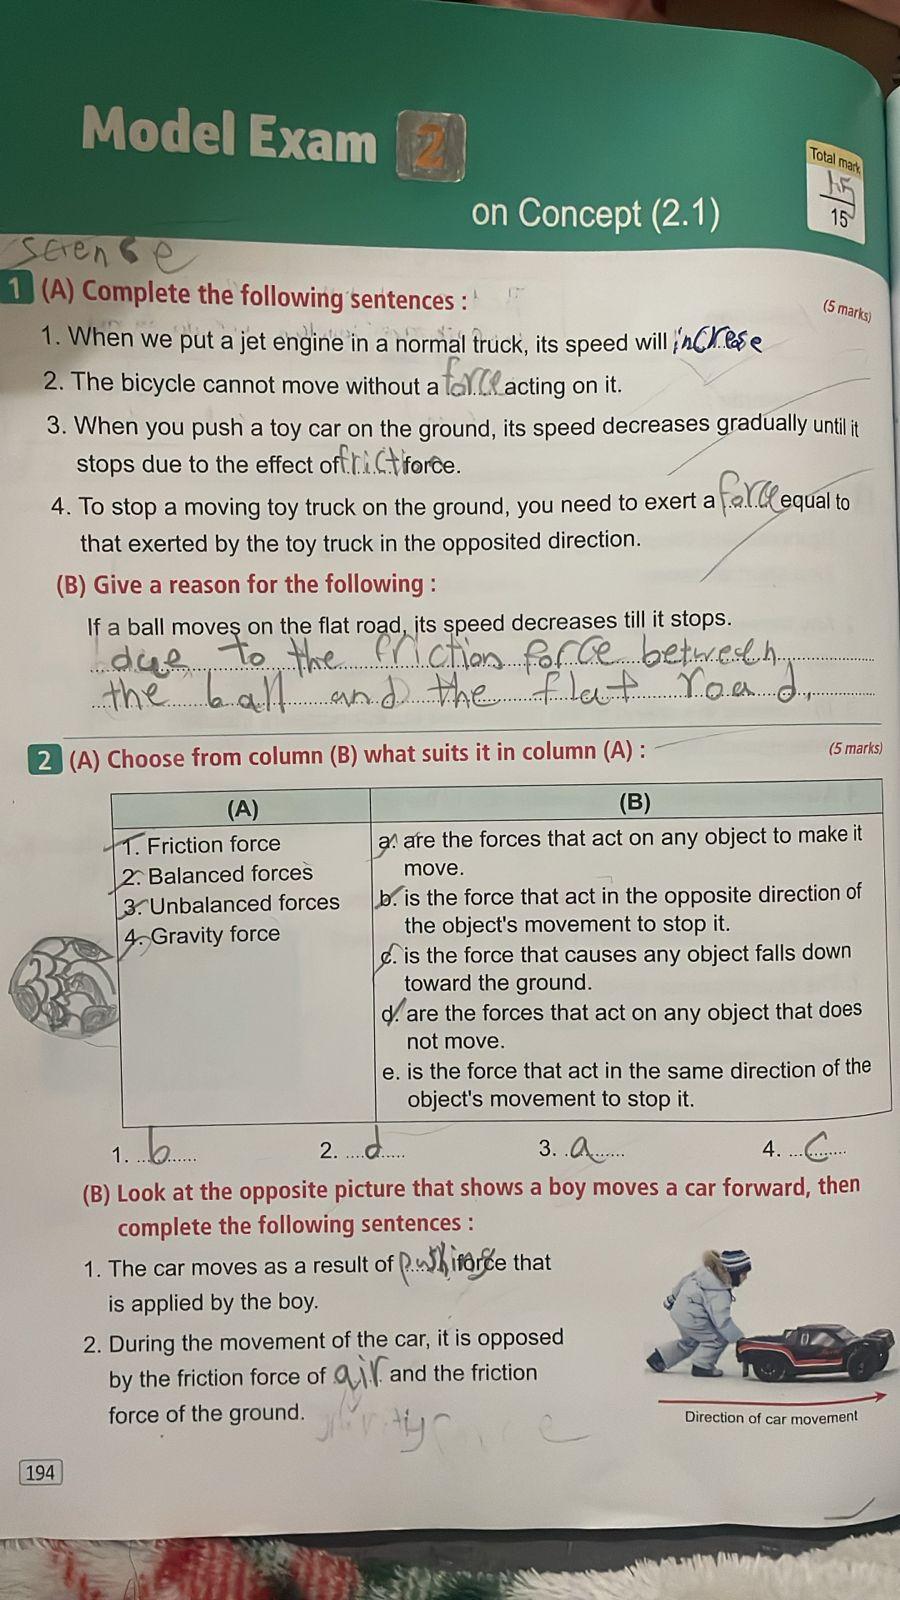 Model Exam 2
Total mark
15
15
on Concept (2.1)
1 (A) Complete the following sentences :
(5 marks)
1. When we put a jet engine in a normal truck, its speed will increse
2. The bicycle cannot move without a force acting on it.
3. When you push a toy car on the ground, its speed decreases gradually until it
stops due to the effect of frict force.
4. To stop a moving toy truck on the ground, you need to exert a force equal to
that exerted by the toy truck in the opposited direction.
(B) Give a reason for the following :
If a ball moves on the flat road, its speed decreases till it stops.
due to the friction force between
the ball and the flat road.
2 (A) Choose from column (B) what suits it in column (A) :
(5 marks)
(A)
(B)
1. Friction force
2. Balanced forces
3. Unbalanced forces
4. Gravity force
a. are the forces that act on any object to make it
move.
b. is the force that act in the opposite direction of
the object's movement to stop it.
c. is the force that causes any object falls down
toward the ground.
d. are the forces that act on any object that does
not move.
e. is the force that act in the same direction of the
object's movement to stop it.
1. b
2. d
3. a
4. c
(B) Look at the opposite picture that shows a boy moves a car forward, then
complete the following sentences :
1. The car moves as a result of pushing force that
is applied by the boy.
2. During the movement of the car, it is opposed
by the friction force of air and the friction
force of the ground.
Direction of car movement
194